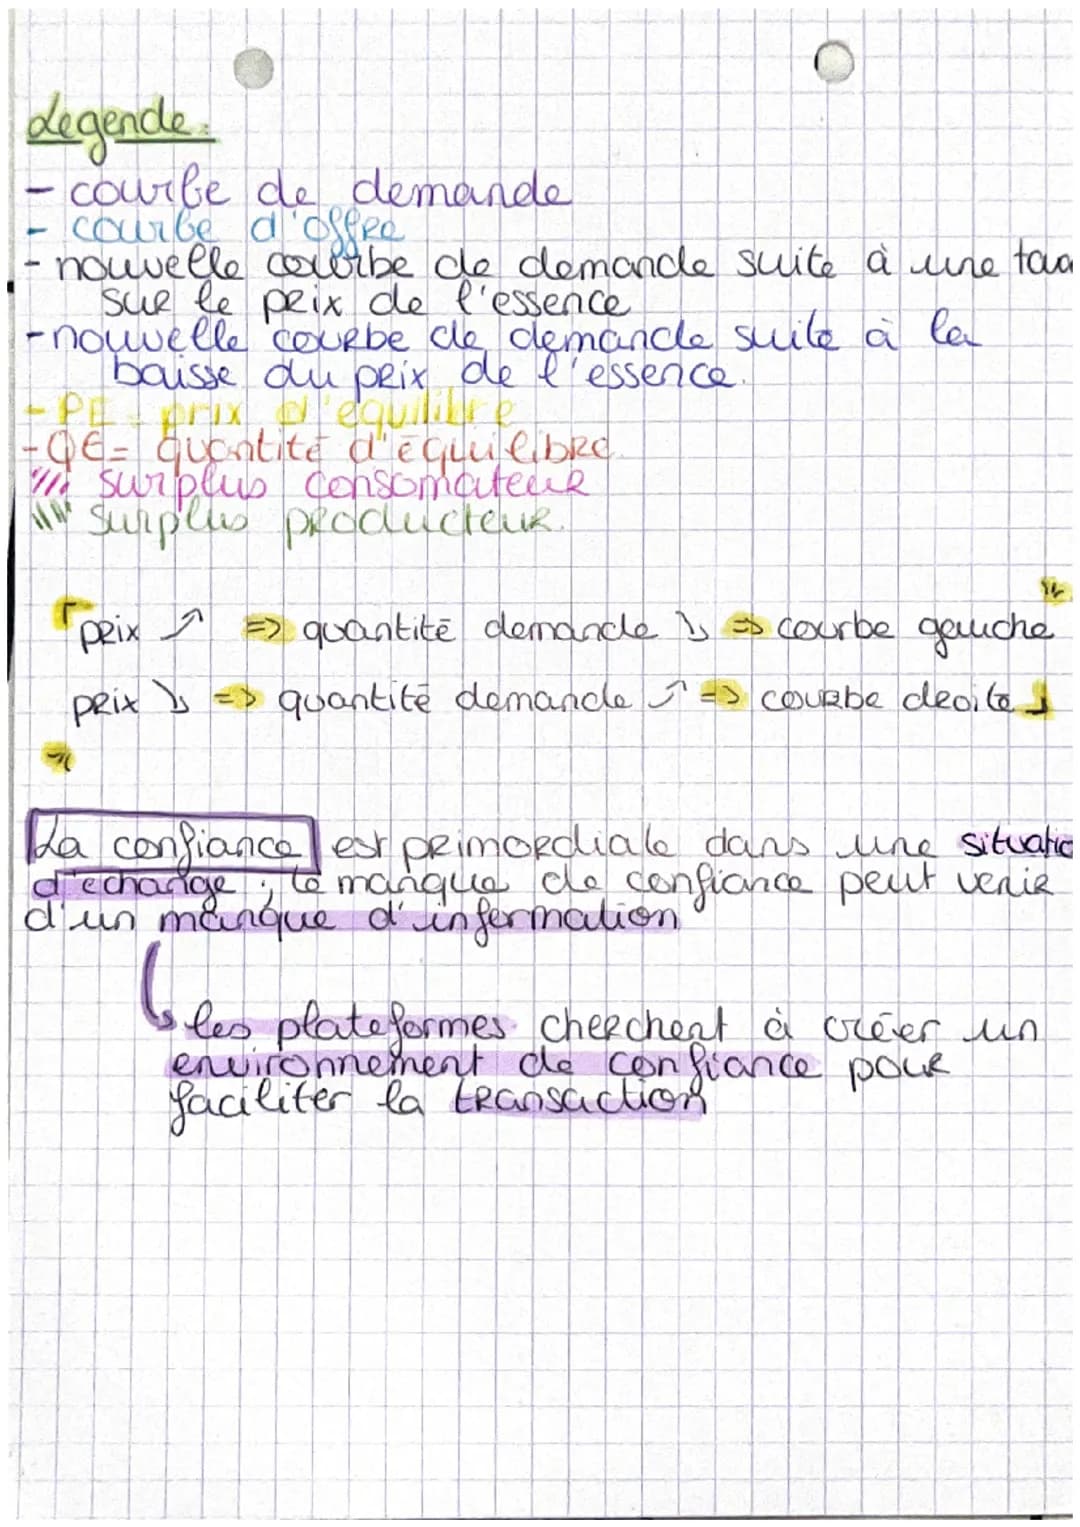 Legende:
- courbe de demande
- courbe d'offre
- nouvelle courbe de demande suite à une
sur le prix de l'essence
- nouvelle courbe de demande suite à la
baisse du prix de l'essence.
- PE = prix d'équilibre
- QE = quantité d'équilibre.
surplus consomateur
surplus producteur.
prix ↗ => quantité demande ↘ => courbe gauche
prix ↘ => quantité demande ↗ => courbe droite
La confiance est primordiale dans une situatio
d'echange ; le manque de confiance peut venir
d'un manque d'information
↳ les plateformes cherchent à créer un
environnement de confiance pour
faciliter la transaction